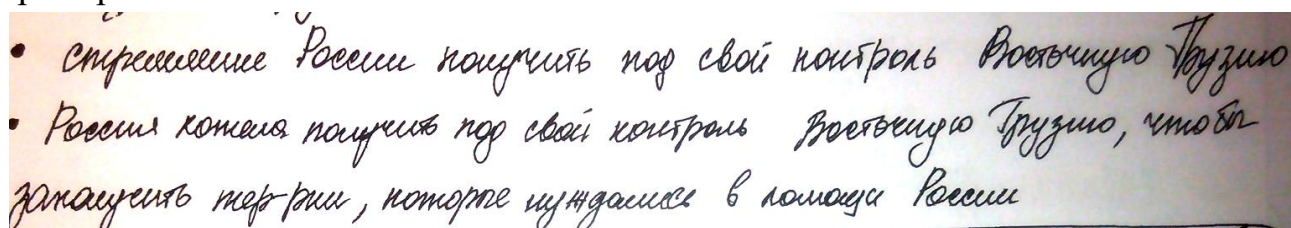 • стремление России получить под свой контроль Восточную Грузию
• Россия хотела получить под свой контроль Восточную Грузию, чтобы
заполучить тер-рии, которые нуждались в помощи России